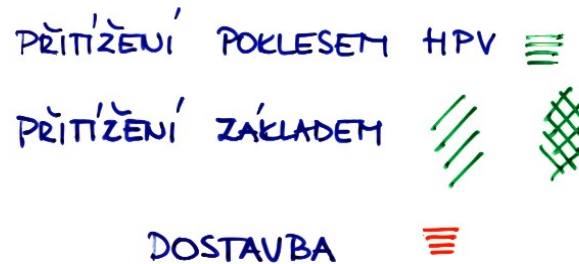 PŘITÍŽENÍ POKLESEM HPV
PŘITÍŽENÍ ZÁKLADEM
DOSTAVBA